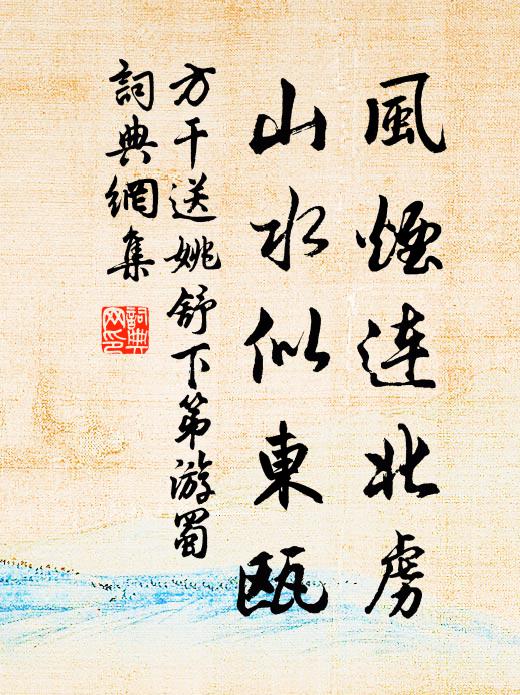 風煙連北虜
山水似東甌
方干送姚舒下第游蜀
詞典網集
詞典網印